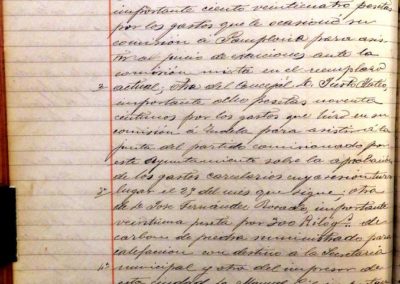 importante ciento veinticuatro pesetas
por los gastos que le ocasionó su
comisión á Pamplona para asis-
tir al juicio de exenciones ante la
comisión mixta en el reemplazo
2ª actual; otra del Concejal D. Justo
importante ocho pesetas noventa
centimos por los gastos que hizo en su
comisión á Tudela para asistir á la
junta del partido comisionado por
este Ayuntamiento sobre la aprobación
de los gastos carcelarios cuya reunión tuvo
3ª lugar el 27 del mes que sigue: otra
de D. José Fernández importante
veintiuna peseta por 300 Kilógs. de
carbon de piedra suministrado para
calefacion con destino á la Secretaría
4ª municipal y otra del impresor de
esta Ciudad D. Manuel